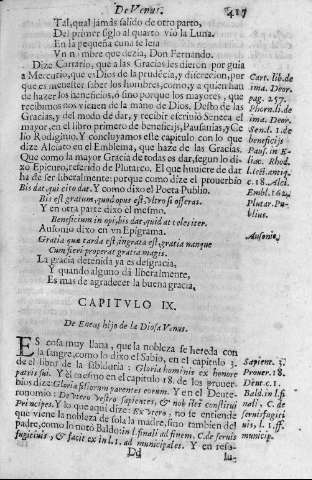 De Venus.
417
Tal, qual jamás salido de otro parto,
Del primer siglo al quarto viò la Luna.
En la pequeña cuna te leia
Vn nombre que dezia, Don Fernando.
Dize Cartario, que a las Gracias les dieron por guia
a Mercurio, que es Dios de la prudẽcia, y discrecion, por
que es menester saber los hombres, como, y a quien han
de hazer los beneficios, ò sino porque los mayores, que
recibimos nos vienen de la mano de Dios. Desto de las
Gracias, y del modo de dar, y recibir escriviò Seneca el
mayor, en el libro primero de beneficijs, Pausanias, y Ce
lio Rodigino. Y concluyamos este capitulo con lo que
dize Alciato en el Emblema, que haze de las Gracias.
Que como la mayor Gracia de todas es dar, segun lo di-
xo Epicuro, referido de Plutarco. El que huuiere de dar
ha de ser liberalmente: porque como dize el prouerbio
Bis dat, qui cito dat. Y como dixo el Poeta Publio.
Bis est gratum, quod opus est, vltro si offeras.
Y en otra parte dixo el mesmo.
Beneficium in opi, bis dat, qui dat celeriter.
Ausonio dixo en vn Epigrama.
Gratia que tarda est ingrata est, gratia nanque
Cum fieri properat gratia magis.
La gracia detenida ya es desgracia,
Y quando alguno dà liberalmente,
Es mas de agradecer la buena gracia.
Cart. lib. de
ima. Deor.
pag. 257.
ima. Deor.
Sen. l. 1. de
beneficijs
Paus. in E-
liac. Rhod.
l. lect. antiq.
c. 18. Alci.
Embl. 162.
Plutar. Pu-
blius.
Ausonio.
CAPITVLO IX.
De Eneas hijo de la Diosa Venus.
ES cosa muy llana, que la nobleza se hereda con
la sangre, como lo dixo el Sabio, en el capitulo 3.
de el libro de la sabiduria: Gloria hominis ex honore
patris sui. Y el mesmo en el capitulo 18. de los prouer-
bios dize: Gloria filiorum parentes eorum. Y en el Deute-
ronomio: De vero vestro sapientes, & nobiles constitui
Principes. Y lo que aqui dize: Ex vtero, no se entiende
que viene la nobleza de sola la madre, sino tambien del
padre, como lo notò Baldo: in l. finali ad finem, C. de servis
fugitiuis, & facit ex in l. 1. ad municipales. Y en reso-
Sapient. 3.
Prouer. 18.
Deut. c. 1.
Bald. in l. fi
nali. C. de
servis fugiti
uis, l. 1. ff.
municip.
Dd
lu-